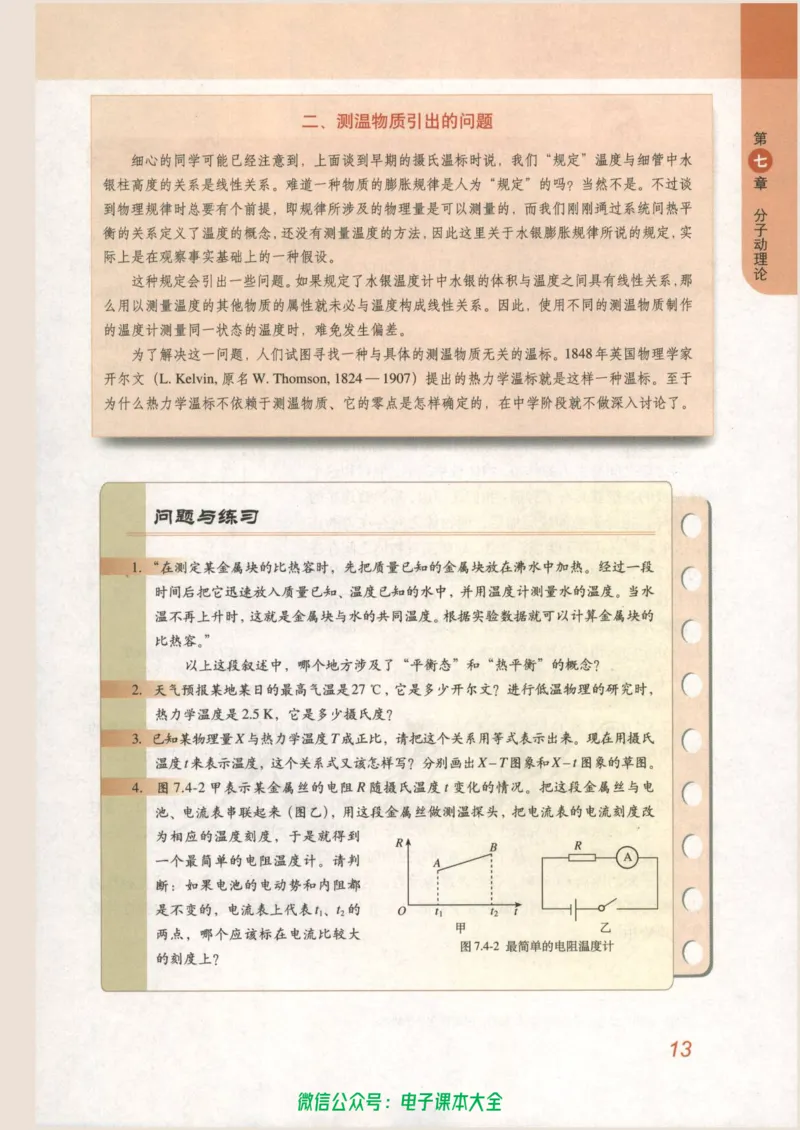 二、测温物质引出的问题
细心的同学可能已经注意到，上面谈到早期的摄氏温标时说，我们“规定”温度与细管中水
银柱高度的关系是线性关系。难道一种物质的膨胀规律是人为“规定”的吗？当然不是。不过谈
到物理规律时总要有个前提，即规律所涉及的物理量是可以测量的，而我们刚刚通过系统间热平
衡的关系定义了温度的概念，还没有测量温度的方法，因此这里关于水银膨胀规律所说的规定，实
际上是在观察事实基础上的一种假设。
这种规定会引出一些问题。如果规定了水银温度计中水银的体积与温度之间具有线性关系，那
么用以测量温度的其他物质的属性就未必与温度构成线性关系。因此，使用不同的测温物质制作
的温度计测量同一状态的温度时，难免发生偏差。
为了解决这一问题，人们试图寻找一种与具体的测温物质无关的温标。1848年英国物理学家
开尔文（L. Kelvin, 原名W. Thomson, 1824—1907）提出的热力学温标就是这样一种温标。至于
为什么热力学温标不依赖于测温物质、它的零点是怎样确定的，在中学阶段就不做深入讨论了。
第七章 分子动理论
问题与练习
1. “在测定某金属块的比热容时，先把质量已知的金属块放在沸水中加热。经过一段
时间后把它迅速放入质量已知、温度已知的水中，并用温度计测量水的温度。当水
温不再上升时，这就是金属块与水的共同温度。根据实验数据就可以计算金属块的
比热容。”
以上这段叙述中，哪个地方涉及了“平衡态”和“热平衡”的概念？
2. 天气预报某地某日的最高气温是27 ℃，它是多少开尔文？进行低温物理的研究时，
热力学温度是2.5 K，它是多少摄氏度？
3. 已知某物理量X与热力学温度T成正比，请把这个关系用等式表示出来。现在用摄氏
温度t来表示温度，这个关系式又该怎样写？分别画出X–T图象和X–t图象的草图。
4. 图7.4-2甲表示某金属丝的电阻R随摄氏温度t变化的情况。把这段金属丝与电
池、电流表串联起来（图乙），用这段金属丝做测温探头，把电流表的电流刻度改
为相应的温度刻度，于是就得到
一个最简单的电阻温度计。请判
断：如果电池的电动势和内阻都
是不变的，电流表上代表t₁、t₂的
两点，哪个应该标在电流比较大
的刻度上？
R
A
B
O
t₁
t₂
t
甲
R
A
乙
图7.4-2 最简单的电阻温度计
13
微信公众号：电子课本大全